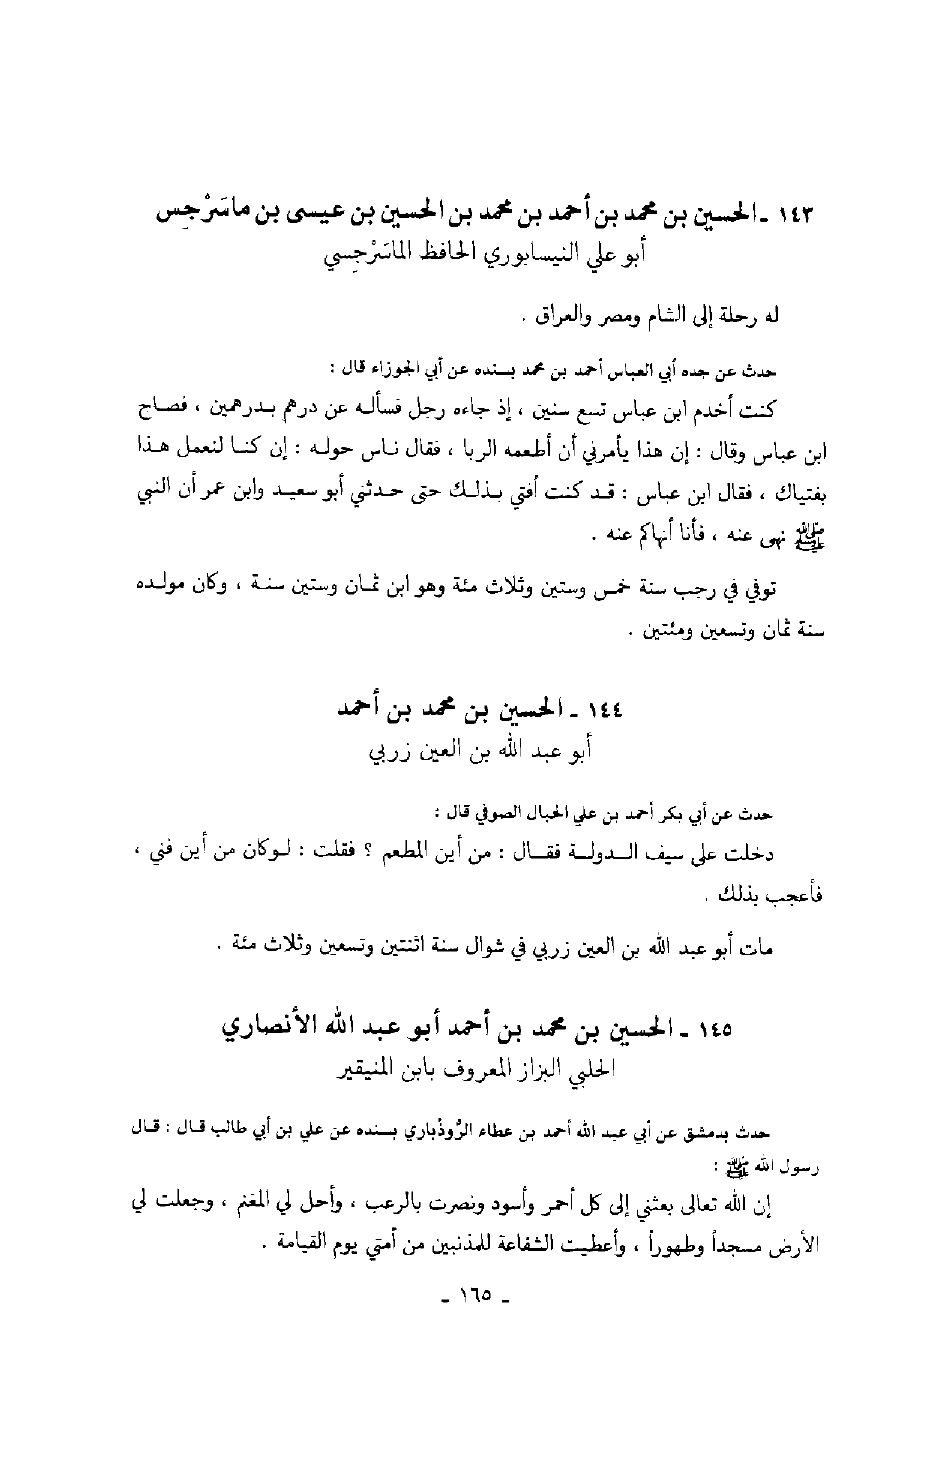 ١٤٣ ـ الحسين بن محمد بن أحمد بن محمد بن الحسين بن عيسى بن ماسَرْجِس
أبو علي النيسابوري الحافظ الماسَرْجِسي
له رحلة إلى الشام ومصر والعراق .
حدث عن جده أبي العباس أحمد بن محمد بسنده عن أبي الجوزاء قال :
كنت أخدم ابن عباس تسع سنين ، إذ جاءه رجل فسأله عن درهم بدرهمين ، فصاح
ابن عباس وقال : إن هذا يأمرني أن أطعمه الربا ، فقال ناس حوله : إن كنا لنعمل هذا
بفتياك ، فقال ابن عباس : قد كنت أفتي بذلك حتى حدثني أبو سعيد وابن عمر أن النبي
ﷺ نهى عنه ، فأنا أنهاكم عنه .
توفي في رجب سنة خمس وستين وثلاث مئة وهو ابن ثمان وستين سنة ، وكان مولده
سنة ثمان وتسعين ومئتين .
١٤٤ ـ الحسين بن محمد بن أحمد
أبو عبد الله بن العين زربي
حدث عن أبي بكر أحمد بن علي الحبال الصوفي قال :
دخلت على سيف الدولة فقال : من أين المطعم ؟ فقلت : لو كان من أين فني ،
فأعجب بذلك .
مات أبو عبد الله بن العين زربي في شوال سنة اثنتين وتسعين وثلاث مئة .
١٤٥ ـ الحسين بن محمد بن أحمد أبو عبد الله الأنصاري
الحلبي البزاز المعروف بابن المنيقير
حدث بدمشق عن أبي عبد الله أحمد بن عطاء الرُّوذْباري بسنده عن علي بن أبي طالب قال : قال
رسول الله ﷺ :
إن الله تعالى بعثني إلى كل أحمر وأسود ونصرت بالرعب ، وأحل لي المغنم ، وجعلت لي
الأرض مسجداً وطهوراً ، وأعطيت الشفاعة للمذنبين من أمتي يوم القيامة .
ـ ١٦٥ ـ